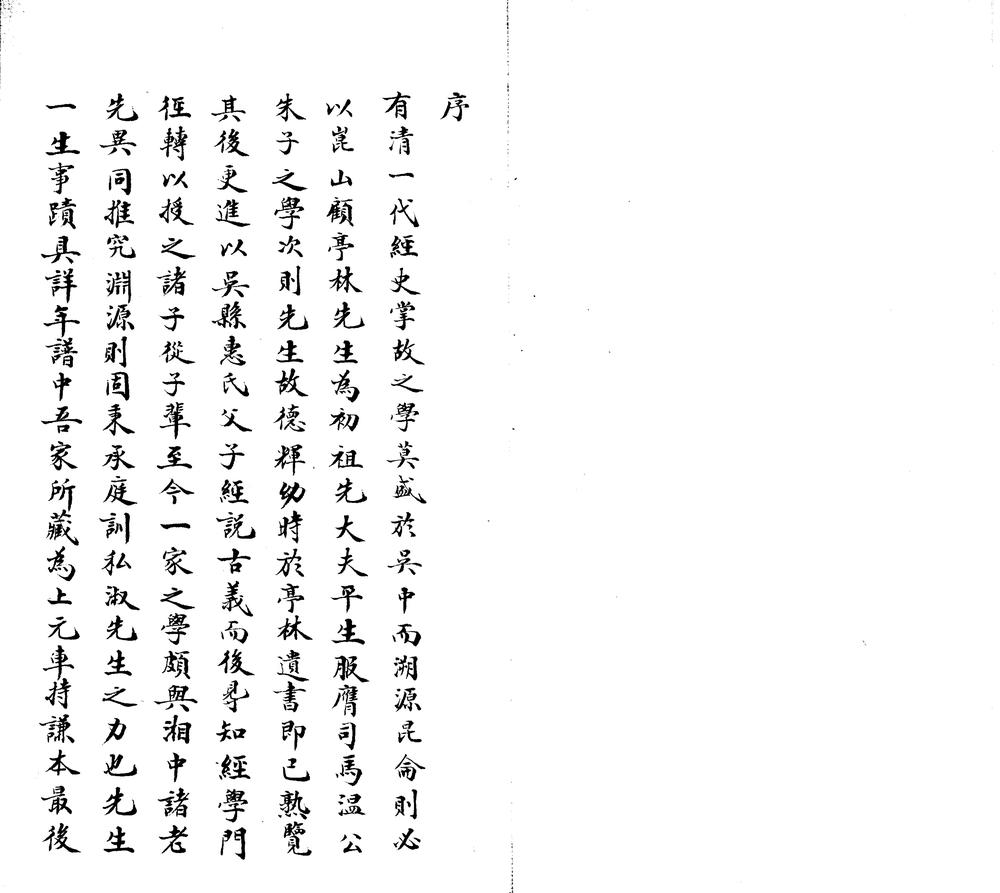 序
有清一代經史掌故之學莫盛於吳中而溯源昆侖則必
以崑山顧亭林先生為初祖先大夫平生服膺司馬溫公
朱子之學次則先生故德輝幼時於亭林遺書即已熟覽
其後更進以吳縣惠氏父子經說古義而後㝵知經學門
徑轉以授之諸子從子輩至今一家之學頗與湘中諸老
先異同推究淵源則固秉承庭訓私淑先生之力也先生
一生事蹟具詳年譜中吾家所藏為上元車持謙本最後